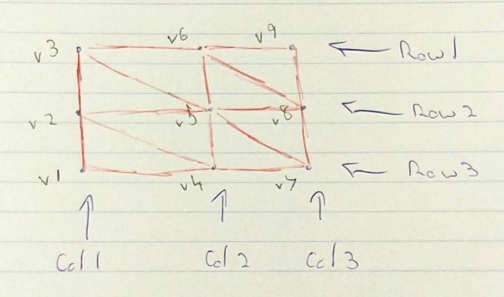 v3 v6 v9 Row 1
v2 v5 v8 Row 2
v1 v4 v7 Row 3
Col 1 Col 2 Col 3